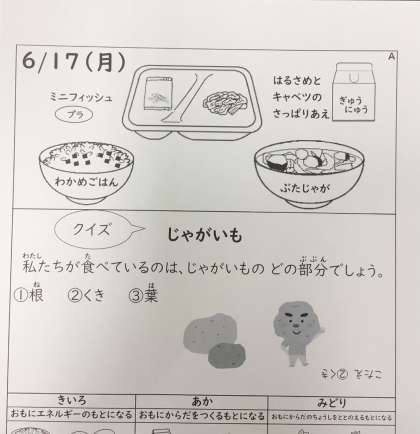 A
6/17(月)
ミニフィッシュ
プラ
はるさめと
キャベツの
さっぱりあえ
ぎゅう
にゅう
わかめごはん
ぶたじゃが
クイズ
じゃがいも
わたし た ぶぶん
私たちが食べているのは、じゃがいもの どの部分でしょう。
ね は
①根 ②くき ③葉
こたえ ②くき
きいろ あか みどり
おもにエネルギーのもとになる おもにからだをつくるもとになる おもにからだのちょうしをととのえるもとになる